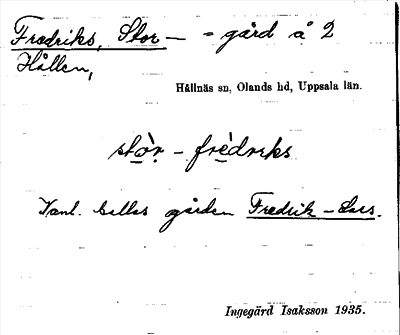 Fredriks, Stor — = gård å 2
Hållen,
Hållnäs sn, Olands hd, Uppsala län.
stò̱r - frè̱dreks
Vanl. kallas gården Fredrik-Lars.
Ingegärd Isaksson 1935.